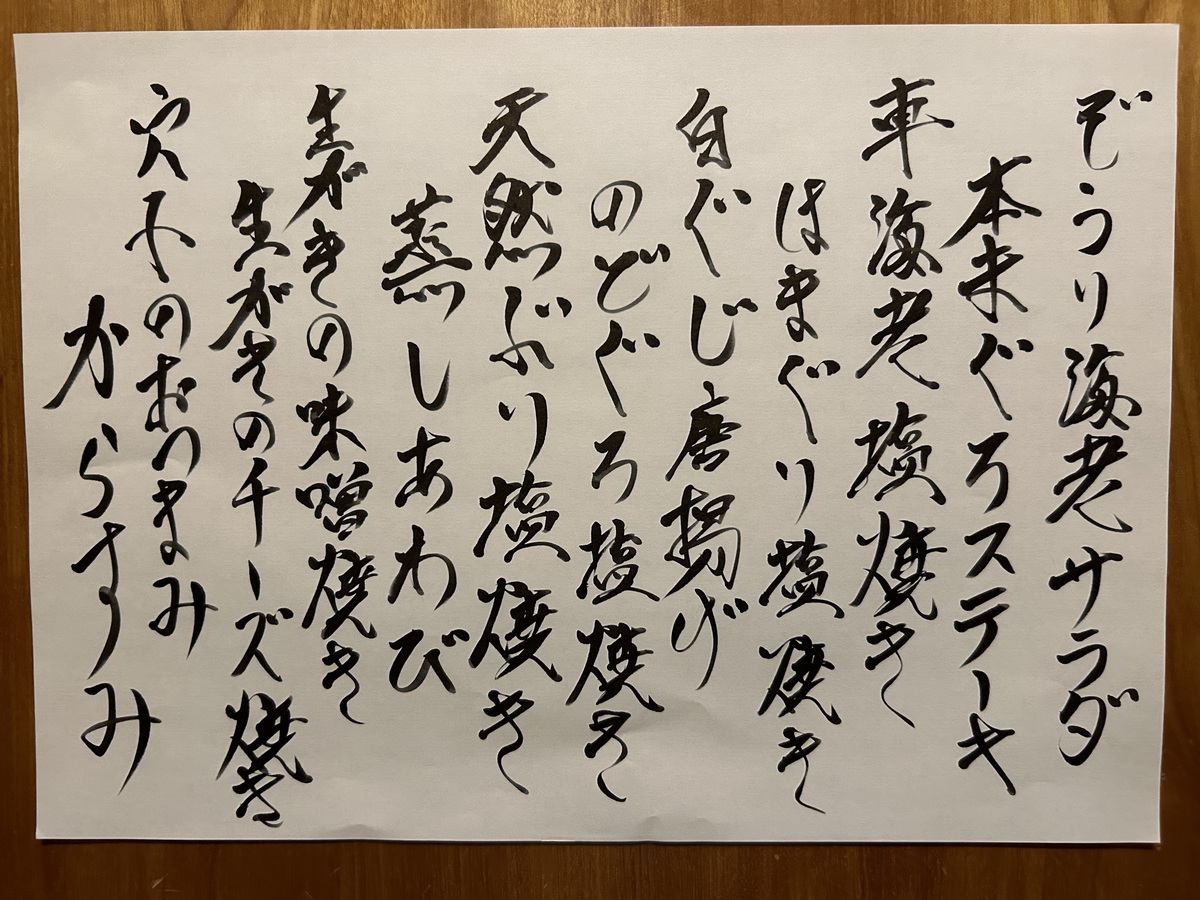 ぞうり海老サラダ
本まぐろステーキ
車海老塩焼き
はまぐり塩焼き
白ぐじ唐揚げ
のどぐろ塩焼き
天然ぶり塩焼き
蒸しあわび
生がきの味噌焼き
生がきのチーズ焼き
穴子のおつまみ
からすみ